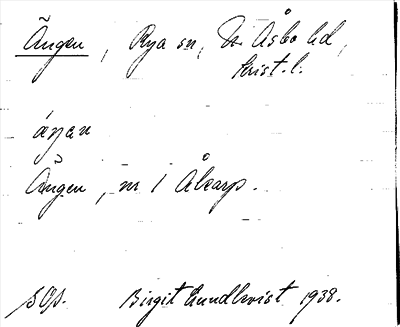 Ängen, Rya sn, N. Åsbo hd,
Krist. l.
äŋan
Ängen, nr 1 Åkarp.
sOp. Birgit Lundkvist 1938.